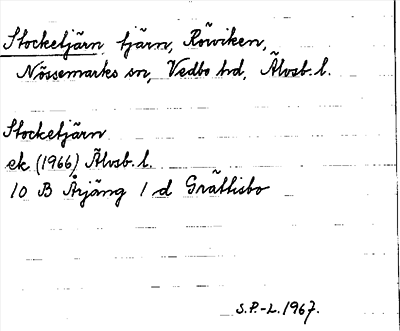 Stocketjärn, tjärn, Rörviken,
Nössemarks sn, Vedbo hd, Älvsb. l.
Stocketjärn
ek (1966) Älvsb. l.
10 B Årjäng 1 d Grättisbo
S.P.-L. 1967.